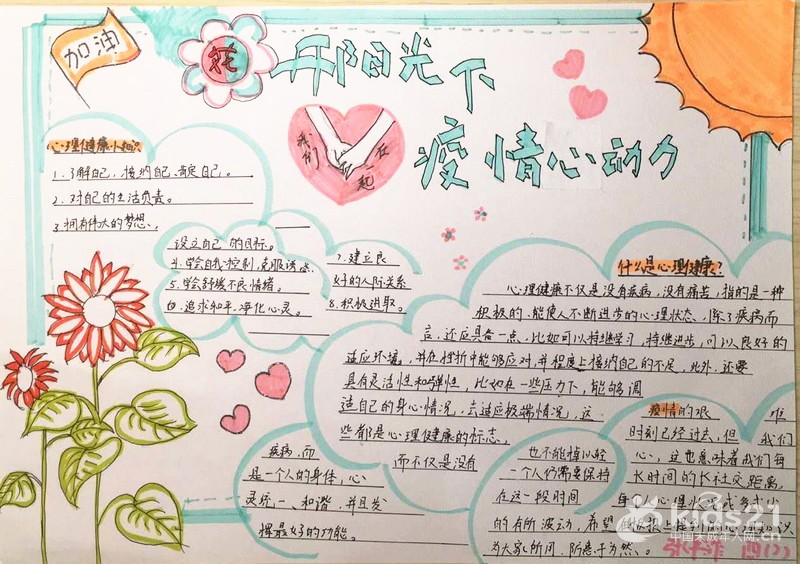 加油
花开阳光下
我们一起
疫情心动力
心理健康小知识
1.了解自己,接纳自己,肯定自己。
2.对自己的生活负责。
3.拥有伟大的梦想、
设立自己的目标。
4.学会自我控制,克服诱惑
5.学会舒缓不良情绪。
追求和平,净化心灵。
7.建立良
好的人际关系
8.积极进取。
什么是心理健康?
心理健康不仅是没有疾病,没有痛苦,指的是一种
积极的、能使人不断进步的心理状态,除了疾病而
言,还应具备一点,比如可以持继学习,持继进步,可以良好的
适应环境,并在挫折中能够应对,并程度上接纳自己的不足,此外,还要
具有灵活性和弹性,比如在一些压力下,能够调
适自己的身心情况,去适应极端情况,这
些都是心理健康的标志,
而不仅是没有
疾病,而
是一个人的身体,心
灵统一、和谐,并且发
挥最好的功能。
疫情的艰难
时刻已经过去,但我们
也不能掉以轻
心,这也意味着我们每
一个人仍需要保持
长时间的长社交距离,
在这一段时间
每个人心理
的有所波动,希望
为大家所问,防患于为然、。
四(2)
kids21
中国未成年人网.cn